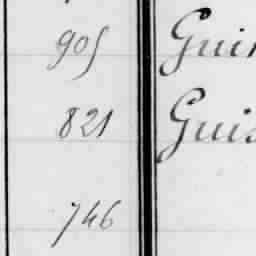 905 Gui
821 Guis
746